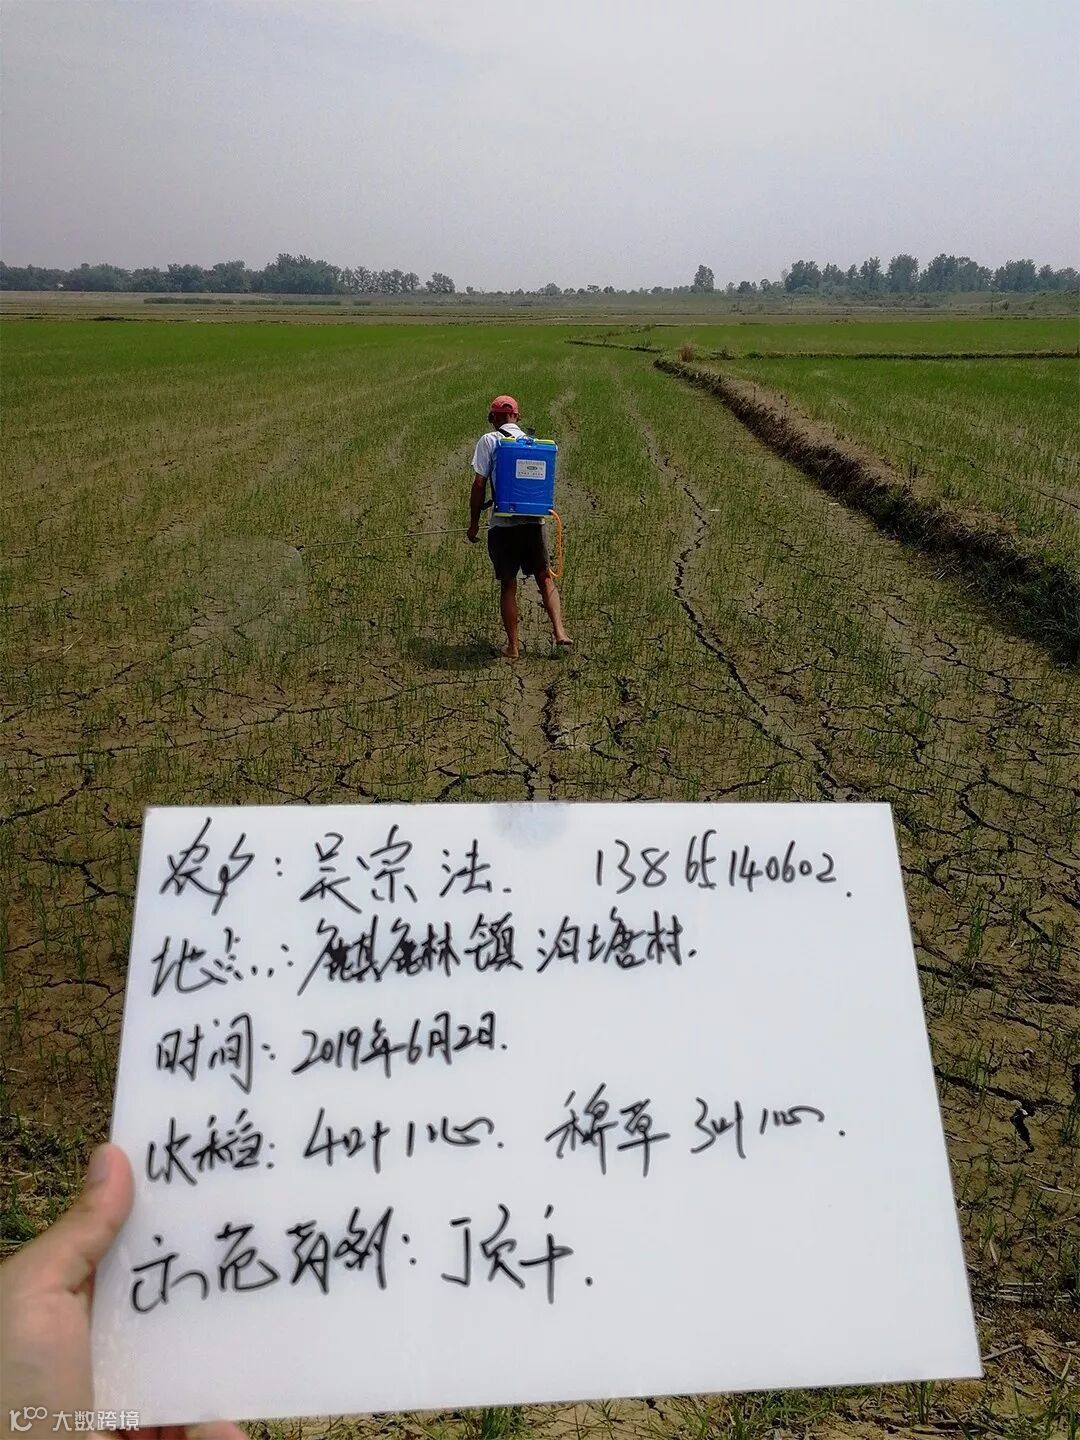 农户:吴宗法. 13865140602.
地点:麒麟镇泊塘村.
时间:2019年6月2日.
水稻:4叶1心. 稗草 3叶1心.
示范药剂:顶千.
大数跨境